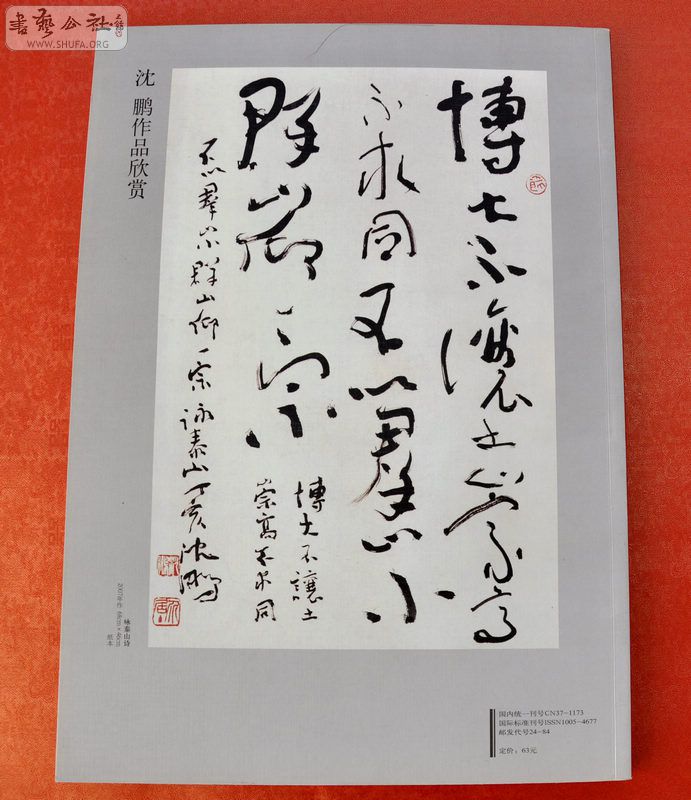 書藝公社
WWW.SHUFA.ORG
沈 鹏作品欣赏
博大不讓土崇高
不求同不以羣山小
群山仰一宗
博大不讓土
崇高不求同
不以羣山小群山仰一宗詠泰山丁亥沈鵬
咏泰山诗
2007年作
纸本
国内统一刊号CN37-1173
国际标准刊号ISSN1005-4677
邮发代号24-84
定价：63元